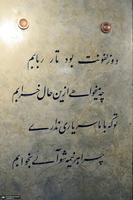 دو زلفونت بود تار ربابم
چه میخواهی ازین حال خرابم
تو که با ما سر یاری نداری
چرا هر نیمه شو آئی بخوابم